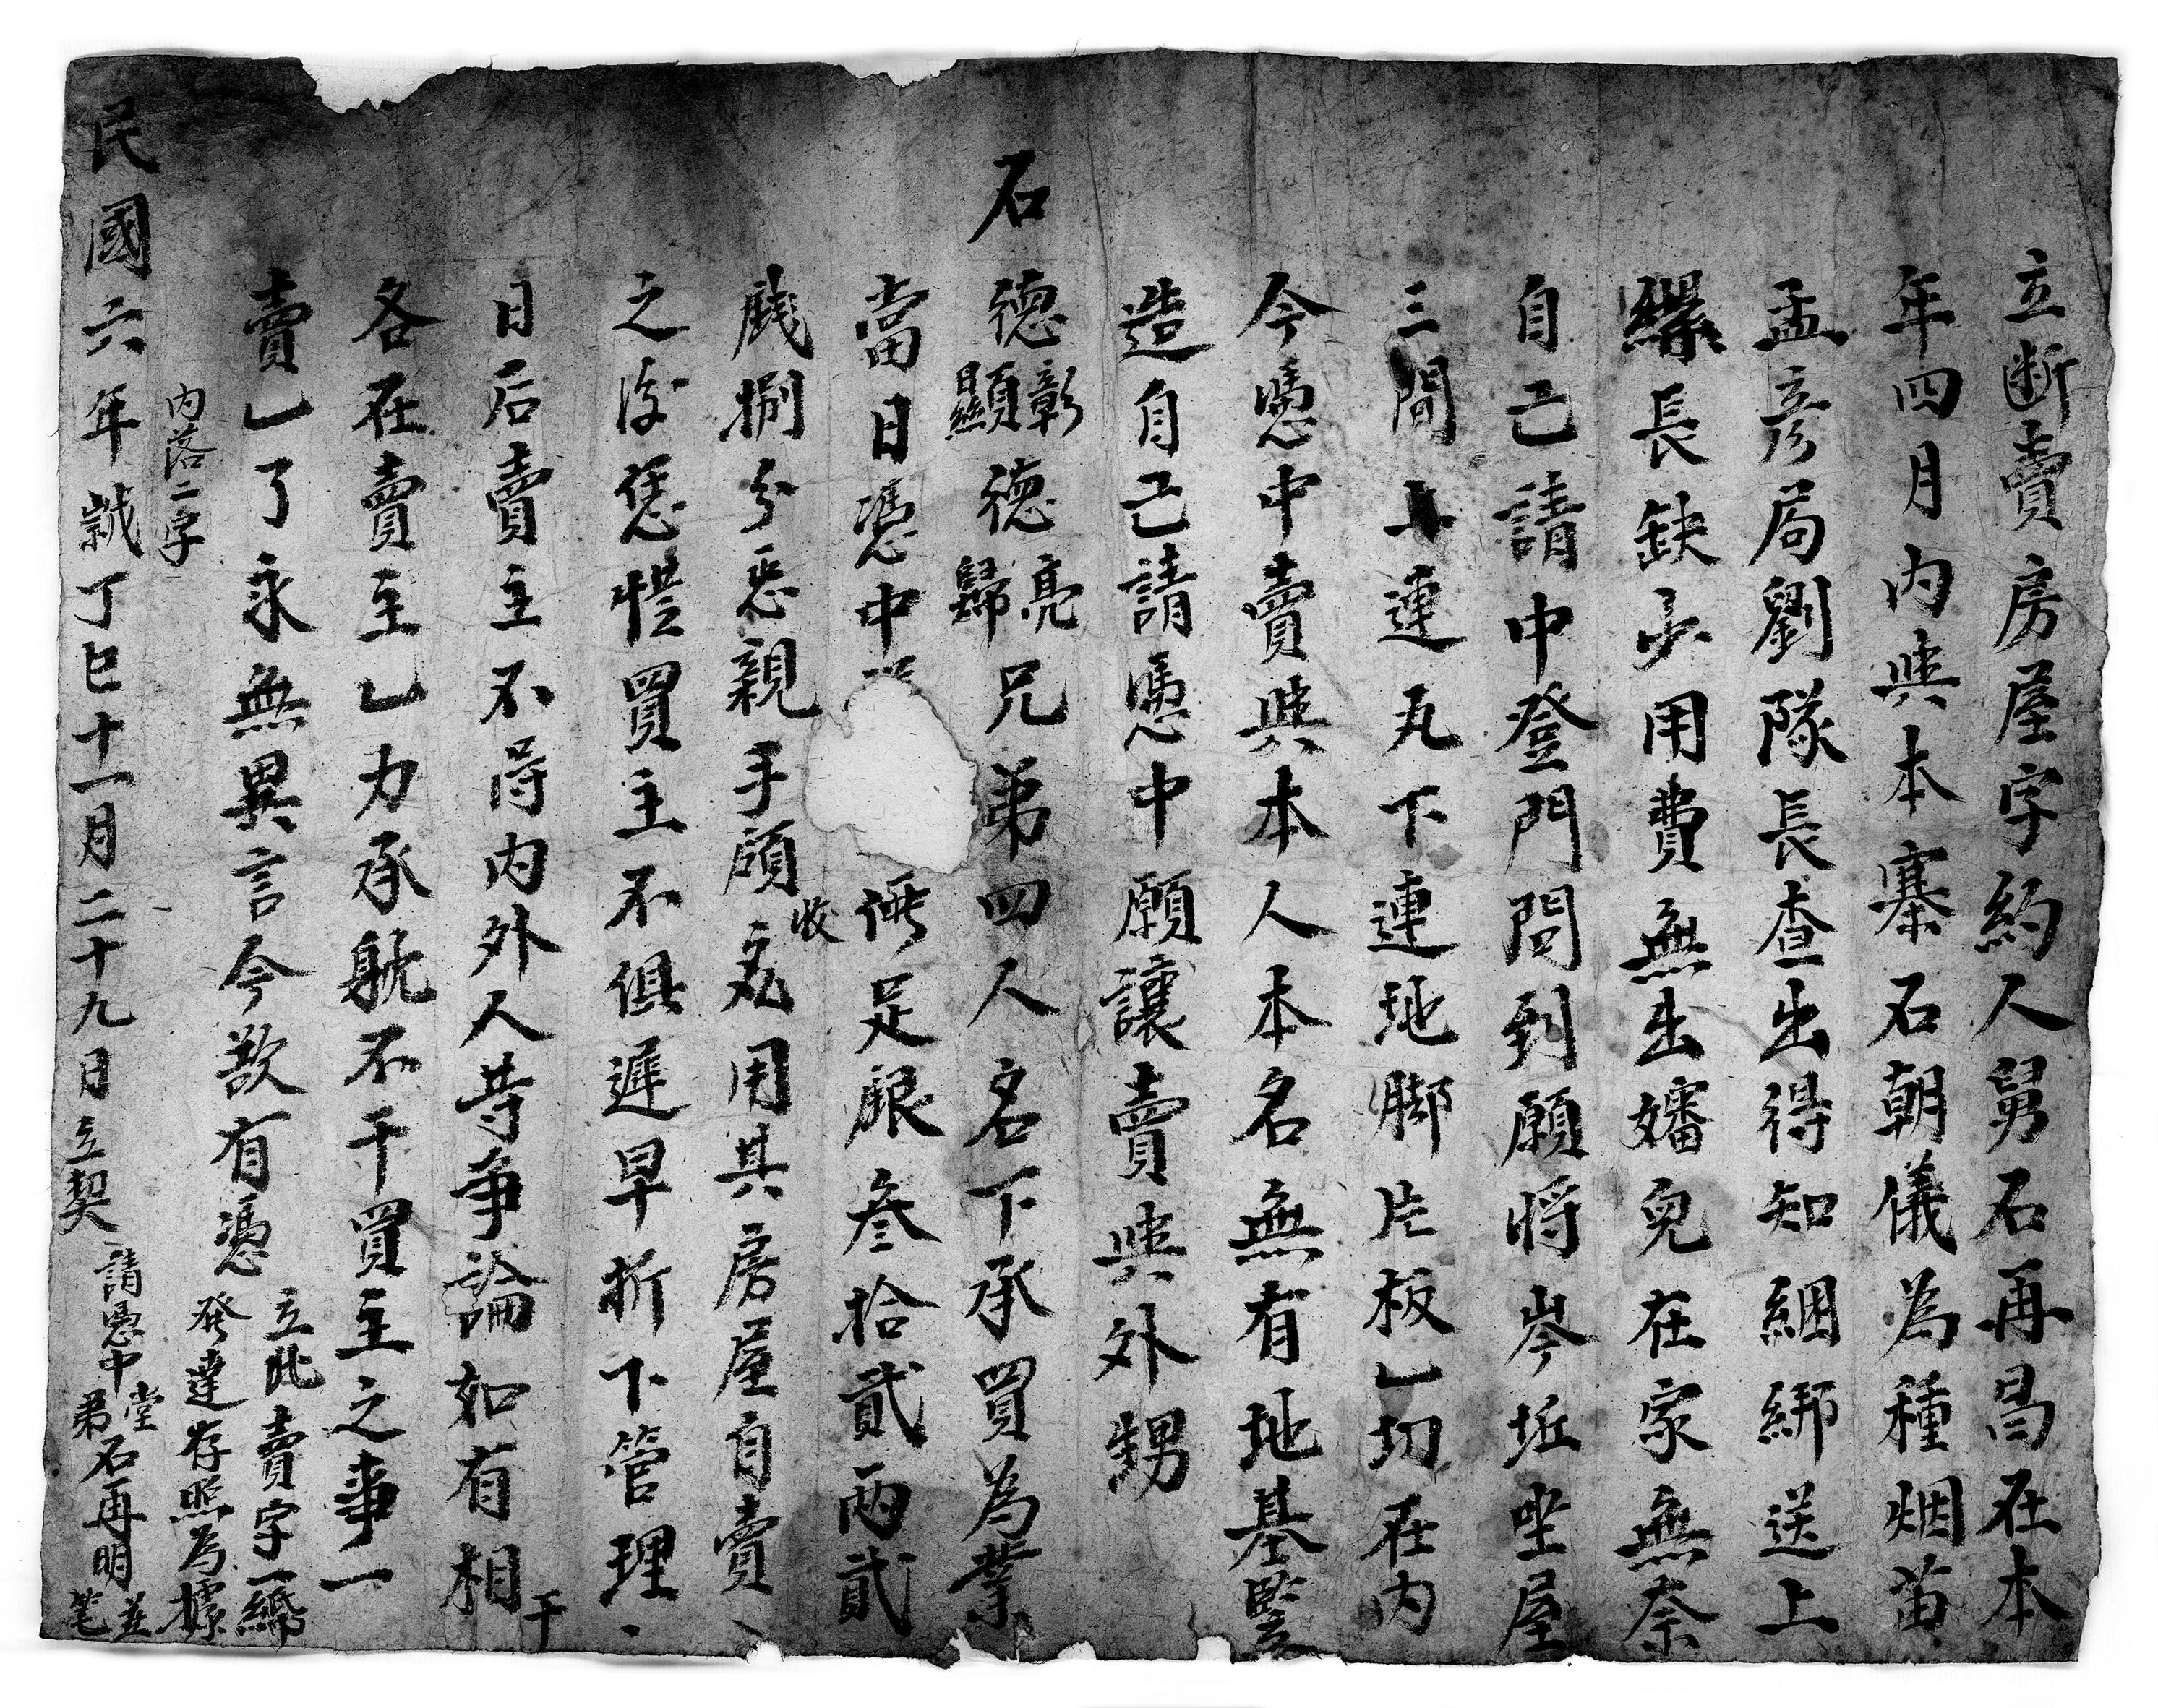 立断賣房屋字約人舅石再昌在本
年四月内與本寨石朝儀為種烟苗
孟彦局劉隊長查出得知綑綁送上
縣長缺少用費無出嬸兒在家無奈
自己請中登門問到願將岑坵坐屋
三間上連瓦下連地脚片板乚切在内
今憑中賣與本人本名無有地基豎
造自己請憑中願讓賣與外甥
石德彰顯德亮歸兄弟四人名下承買為業
當日憑中 足銀叁拾貳兩貳
戔捌分 親手領收 用其房屋自賣
之後恁憑買主不俱遲早折下管理
日后賣主不得内外人等争論如有相干
各在賣主乚力承躭不干買主之事一
賣乚了永無異言今欲有憑立此賣字一綿
發達存照為據
内落二字
民國六年歲丁巳十一月二十九月立契
請憑中堂弟石再明並笔